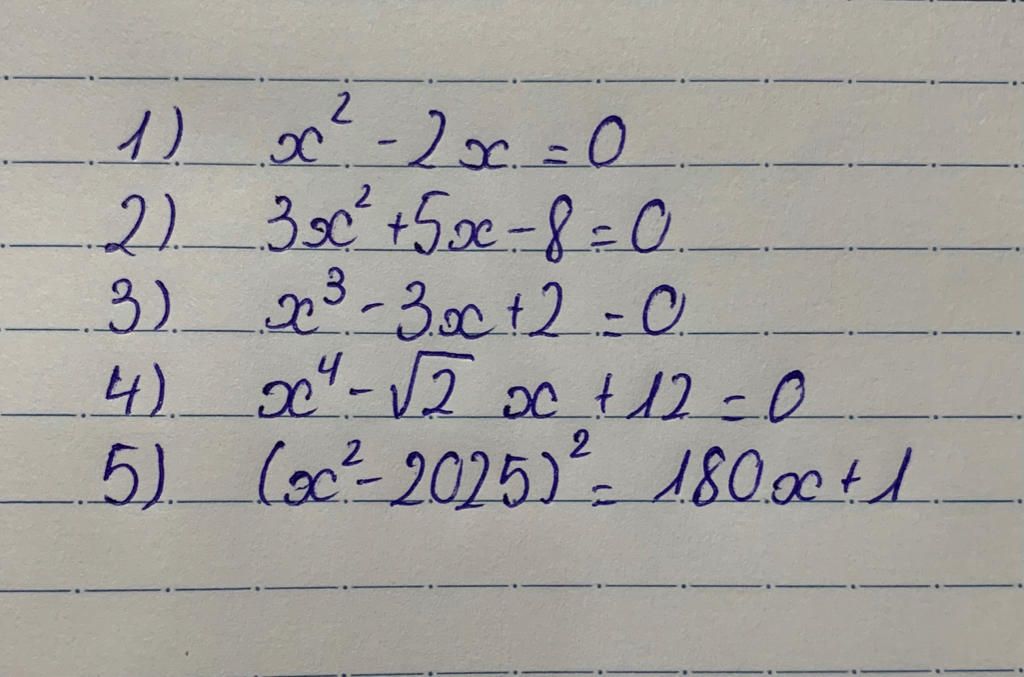 1) x² - 2x = 0
2) 3x² + 5x - 8 = 0
3) x³ - 3x + 2 = 0
4) x⁴ - √2 x + 12 = 0
5) (x² - 2025)² = 180x + 1